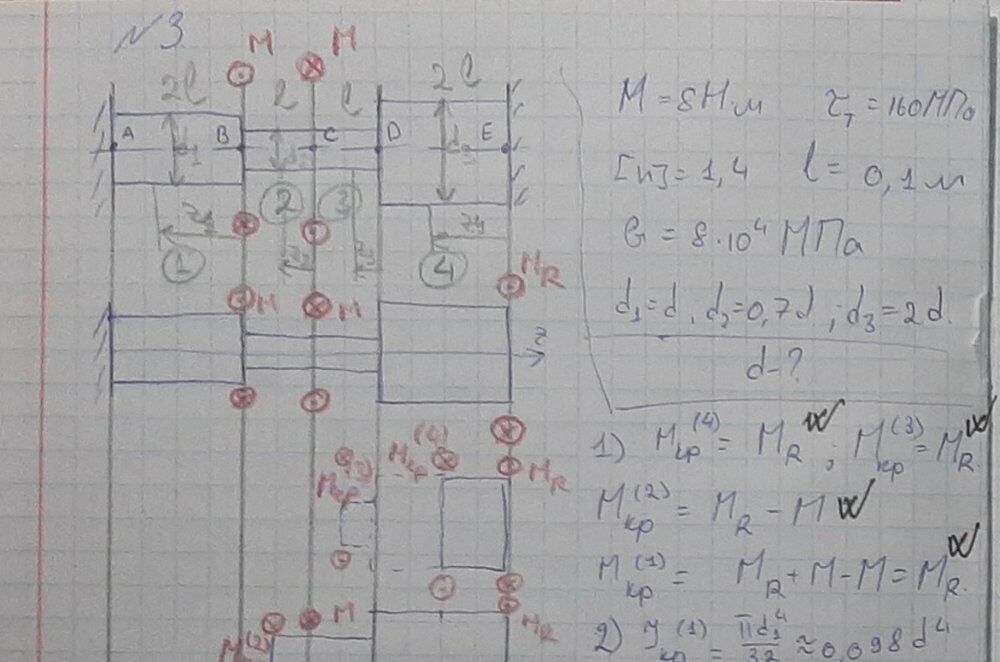 №3
M M
2l l l 2l
A B C D E
d₁ d₃
z₁ z₄
1 2 3 4
M_R
M M
z
M_кр^(4) M_R
M_кр
M M_R
M = 8 Н·м τ_т = 160 МПа
[n] = 1,4 l = 0,1 м
G = 8·10⁴ МПа
d₁ = d, d₂ = 0,7d; d₃ = 2d.
d - ?
1) M_кр^(4) = M_R; M_кр^(3) = M_R.
M_кр^(2) = M_R - M
M_кр^(1) = M_R + M - M = M_R.
2) J_кр^(1) = πd₁⁴/32 ≈ 0,098 d⁴